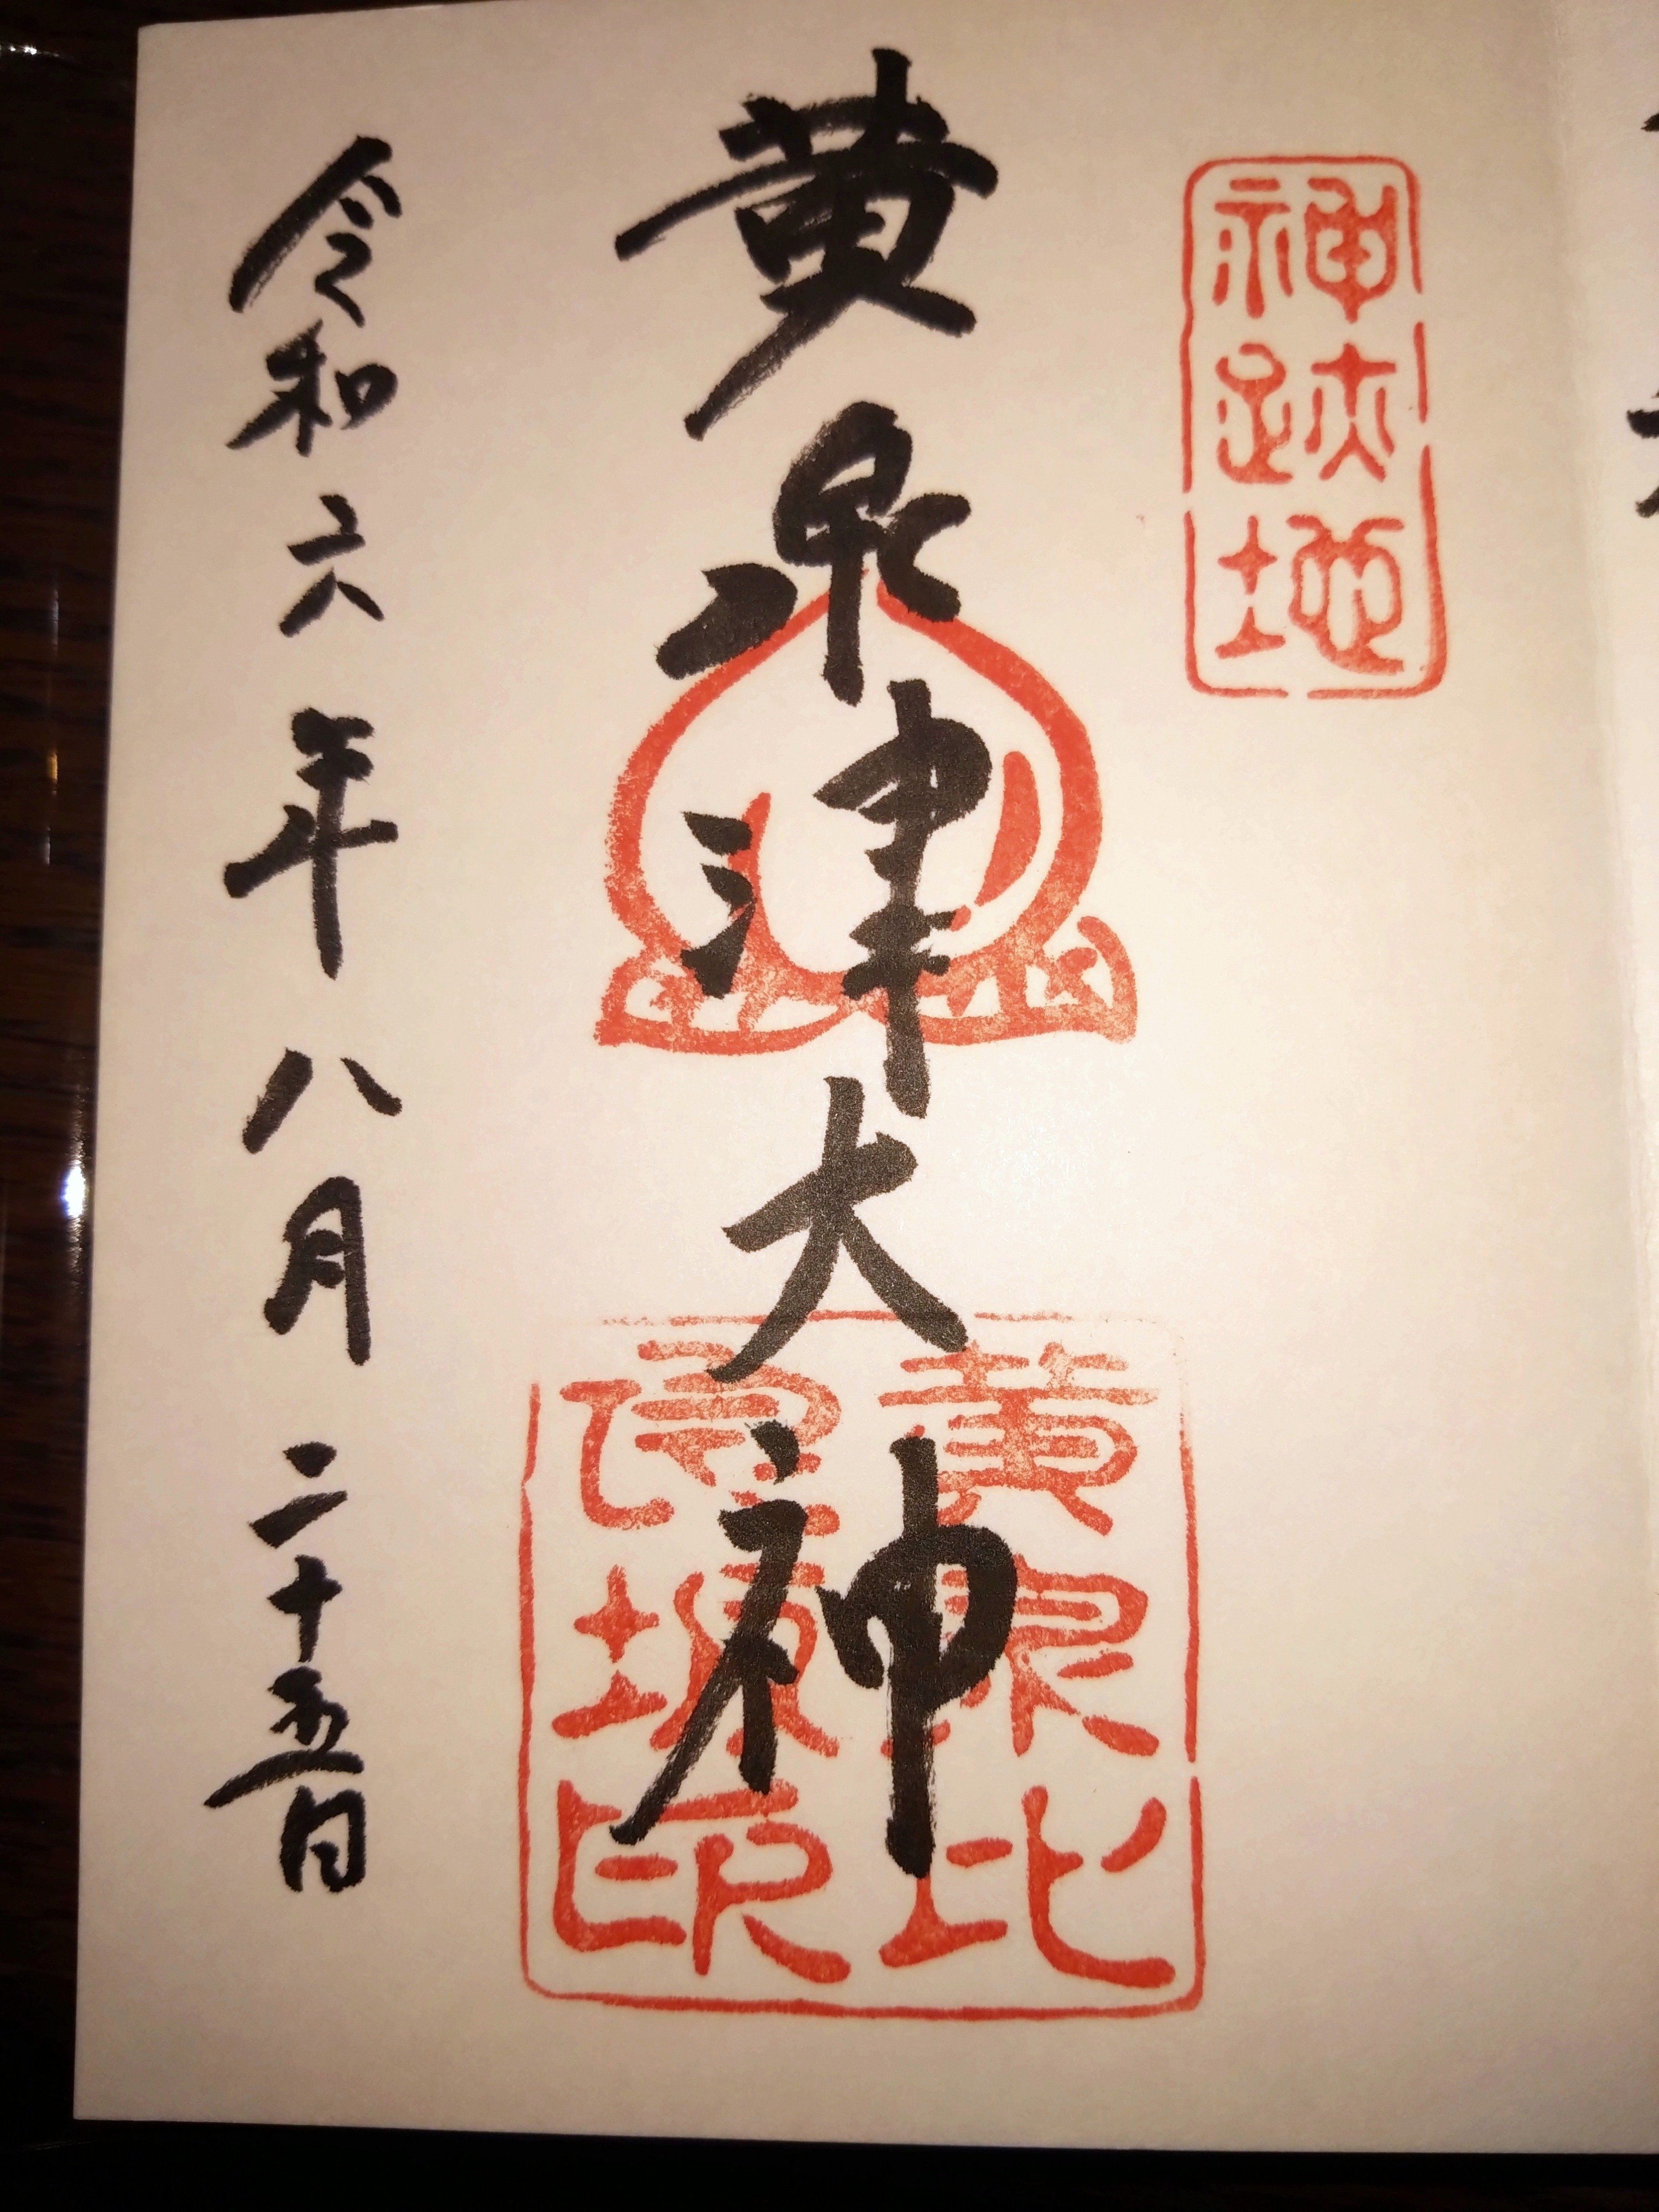 神跡地
黄泉津大神
黄泉比
良坂印
令和六年八月二十五日